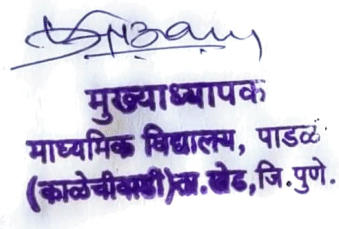 मुख्याध्यापक
माध्यमिक विद्यालय, पाडळी
(काळेचीवाडी)ता.खेड,जि.पुणे.